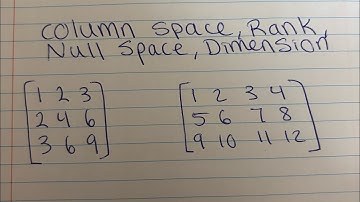 column space, Rank,
Null Space, Dimension
1 2 3
2 4 6
3 6 9
1 2 3 4
5 6 7 8
9 10 11 12